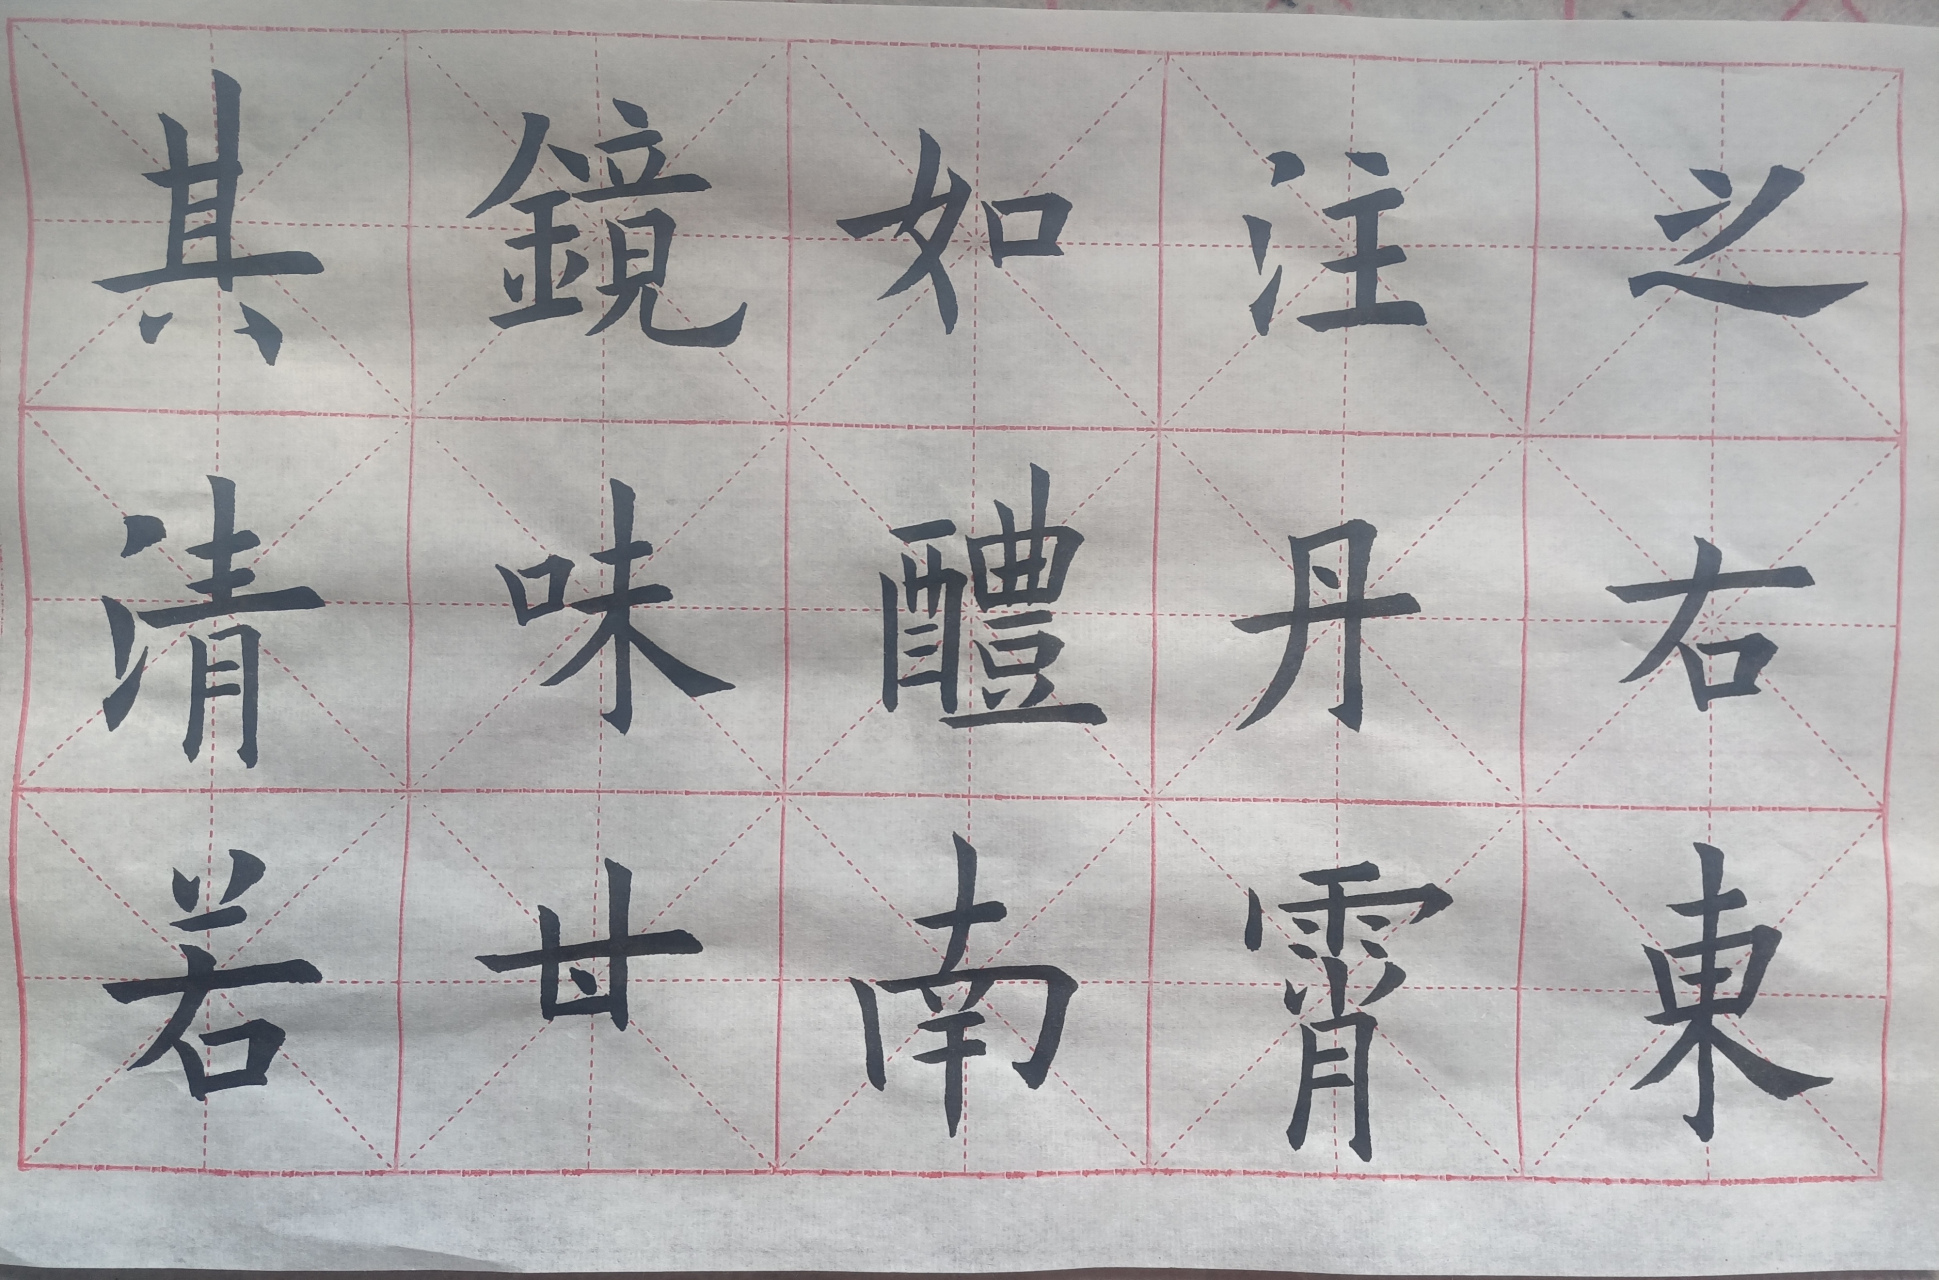 其清若
鏡味甘
如醴南
注丹霄
之右東